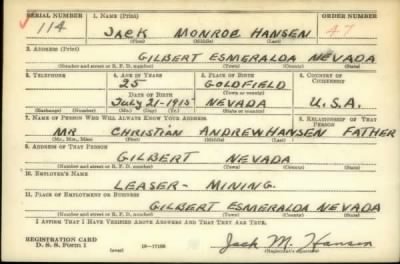 SERIAL NUMBER 1. NAME (Print) ORDER NUMBER
114 JACK MONROE HANSEN 47
(First) (Middle) (Last)
2. ADDRESS (Print)
GILBERT ESMERALDA NEVADA
(Number and street or R. F. D. number) (Town) (County) (State)
3. TELEPHONE 4. AGE IN YEARS 5. PLACE OF BIRTH 6. COUNTRY OF CITIZENSHIP
25 GOLDFIELD
DATE OF BIRTH (Town or county)
July 21-1915 NEVADA U.S.A.
(Exchange) (Number) (Mo.) (Day) (Yr.) (State or country)
7. NAME OF PERSON WHO WILL ALWAYS KNOW YOUR ADDRESS 8. RELATIONSHIP OF THAT PERSON
MR CHRISTIAN ANDREW HANSEN FATHER
(Mr., Mrs., Miss) (First) (Middle) (Last)
9. ADDRESS OF THAT PERSON
GILBERT NEVADA
(Number and street or R. F. D. number) (Town) (County) (State)
10. EMPLOYER'S NAME
LEASER- MINING.
11. PLACE OF EMPLOYMENT OR BUSINESS
GILBERT ESMERALDA NEVADA
(Number and street or R. F. D. number) (Town) (County) (State)
I AFFIRM THAT I HAVE VERIFIED ABOVE ANSWERS AND THAT THEY ARE TRUE.
REGISTRATION CARD
D. S. S. Form 1 (over) Jack M. Hansen
(Registrant's signature)